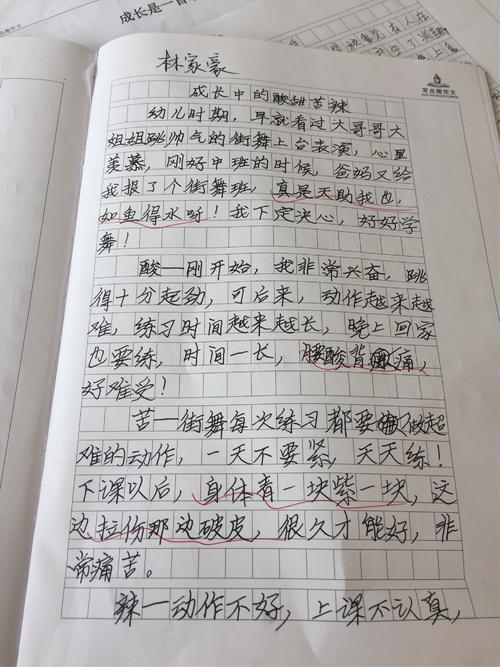 成长是一首
林家豪
写去趣作文
成长中的酸甜苦辣
幼儿时期，早就看过大哥哥大
姐姐跳帅气的街舞上台表演，心里
羡慕，刚好中班的时候，爸妈又给
我报了个街舞班，真是天助我也，
如鱼得水呀！我下定决心，好好学
舞！
酸—刚开始，我非常兴奋，跳
得十分起劲，可后来，动作越来越
难，练习时间越来越长，晚上回家
也要练，时间一长，腰酸背痛，
好难受！
苦—街舞每次练习都要做超
难的动作，一天不要紧，天天练！
下课以后，身体青一块紫一块，这
边拉伤那边破皮，很久才能好，非
常痛苦。
辣—动作不好，上课不认真，